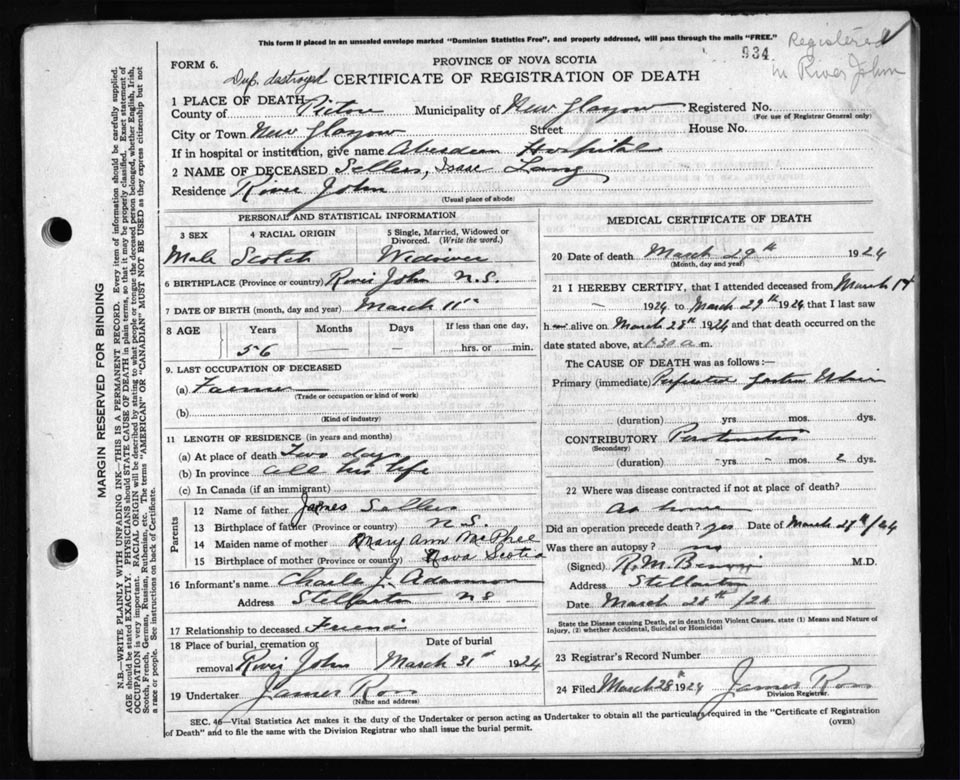 This form if placed in an unsealed envelope marked "Dominion Statistics Free", and properly addressed, will pass through the mails "FREE."
934
Registered
in River John
PROVINCE OF NOVA SCOTIA
FORM 6.
Dup. destroyed
CERTIFICATE OF REGISTRATION OF DEATH
1 PLACE OF DEATH
County of Pictou Municipality of New Glasgow Registered No.
(For use of Registrar General only)
City or Town New Glasgow Street House No.
If in hospital or institution, give name Aberdeen Hospital
2 NAME OF DECEASED Sellers, Isaac Lang
Residence River John
(Usual place of abode)
PERSONAL AND STATISTICAL INFORMATION
3 SEX 4 RACIAL ORIGIN 5 Single, Married, Widowed or Divorced. (Write the word.)
Male Scotch Widower
6 BIRTHPLACE (Province or country) River John N.S.
7 DATE OF BIRTH (month, day and year) March 11th
8 AGE Years Months Days If less than one day,
56 — — hrs. or min.
9. LAST OCCUPATION OF DECEASED
(a) Farmer
(Trade or occupation or kind of work)
(b)
(Kind of industry)
11 LENGTH OF RESIDENCE (in years and months)
(a) At place of death Two days
(b) In province all his life
(c) In Canada (if an immigrant)
Parents
12 Name of father James Sellers
13 Birthplace of father (Province or country) N.S.
14 Maiden name of mother Mary Ann McPhee
15 Birthplace of mother (Province or country) Nova Scotia
16 Informant's name Charles J. Adamson
Address Stellarton NS
17 Relationship to deceased Friend
18 Place of burial, cremation or removal River John
Date of burial March 31st 1924
19 Undertaker James Ross
(Name and address)
MEDICAL CERTIFICATE OF DEATH
20 Date of death March 29th 1924
(Month, day and year)
21 I HEREBY CERTIFY, that I attended deceased from March
1924 to March 29th 1924 that I last saw
h alive on March 28th 1924 and that death occurred on
date stated above, at 1.30 a.m.
The CAUSE OF DEATH was as follows:—
Primary (immediate) Perforated Gastric Ulcer
(duration) yrs. mos. dys.
CONTRIBUTORY Peritonitis
(Secondary)
(duration) yrs. mos. 2 dys.
22 Where was disease contracted if not at place of death?
At home
Did an operation precede death? yes Date of March 27th/24
Was there an autopsy? no
(Signed) R.M. M.D.
Address Stellarton
Date March 28th/24
State the Disease causing Death, or in death from Violent Causes, state (1) Means and Nature of
Injury, (2) whether Accidental, Suicidal or Homicidal
23 Registrar's Record Number
24 Filed March 28th 1924 James Ross
Division Registrar.
SEC. 46—Vital Statistics Act makes it the duty of the Undertaker or person acting as Undertaker to obtain all the particulars required in the "Certificate of Registration
of Death" and to file the same with the Division Registrar who shall issue the burial permit.
(OVER)
MARGIN RESERVED FOR BINDING
N.B.—WRITE PLAINLY WITH UNFADING INK—THIS IS A PERMANENT RECORD. Every item of information should be carefully supplied.
AGE should be stated EXACTLY. PHYSICIANS should STATE CAUSE OF DEATH in plain terms, so that it may be properly classified. Exact statement of
OCCUPATION is very important. RACIAL ORIGIN will be described by stating to what people or tongue the deceased person belonged, whether English, Irish,
Scotch, French, German, Russian, Ruthenian, etc. The terms "AMERICAN" OR "CANADIAN" MUST NOT BE USED as they express citizenship but not
a race or people. See instructions on back of Certificate.